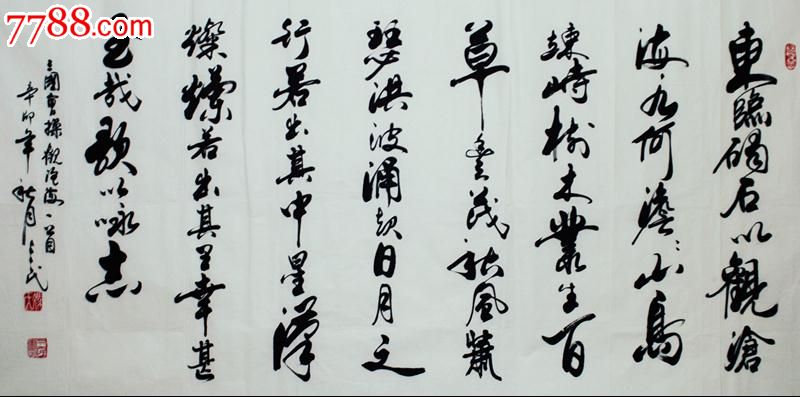 7788.com
東臨碣石以觀滄
海水何澹〻山島
竦峙樹木叢生百
草豐茂秋風蕭
瑟洪波涌起日月之
行若出其中星漢
燦爛若出其里幸甚
至哉歌以詠志
三國曹操觀滄海一首
辛卯年秋月